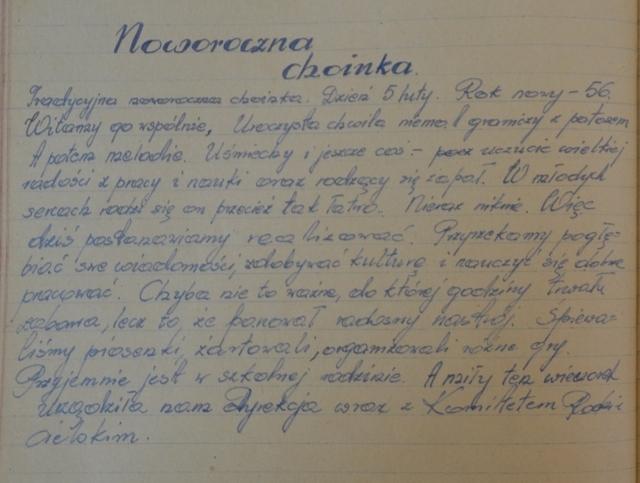 Noworoczna
choinka.
Tradycyjna noworoczna choinka. Dzień 5 luty. Rok nowy - 56.
Witamy go wspólnie, Uroczysta chwila niema
A potem melodie. Uśmiechy i jeszcze coś - uczucie wielkiej
radości z pracy i nauki oraz rodzący się zapał. W młodych
sercach rodzi się on przecież tak łatwo. Nieraz niknie. Więc
dziś postanawiamy realizować. Przyrzekamy pogłę-
biać swe wiadomości, zdobywać kulturę i nauczyć się dobrze
pracować. Chyba nie to ważne, do której godziny trwała
zabawa, lecz to, że panował radosny nastrój. Śpiewa-
liśmy piosenki, żartowali, organizowali różne gry.
Przyjemnie jest w szkolnej rodzinie. A miły ten wieczorek
urządziła nam Dyrekcja wraz z Komitetem Rodzi-
cielskim.